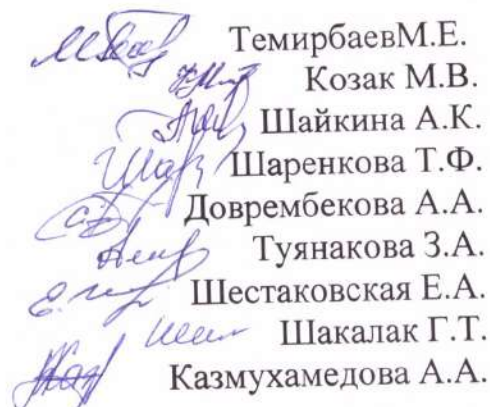 ТемирбаевМ.Е.
Козак М.В.
Шайкина А.К.
Шаренкова Т.Ф.
Доврембекова А.А.
Туянакова З.А.
Шестаковская Е.А.
Шакалак Г.Т.
Казмухамедова А.А.